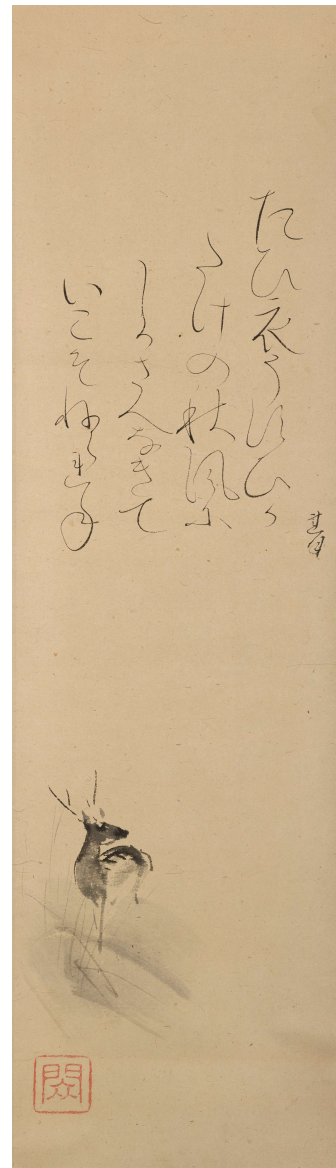 たひ衣うすひか
たけの秋風に
しかさへなきて
いこそねられね